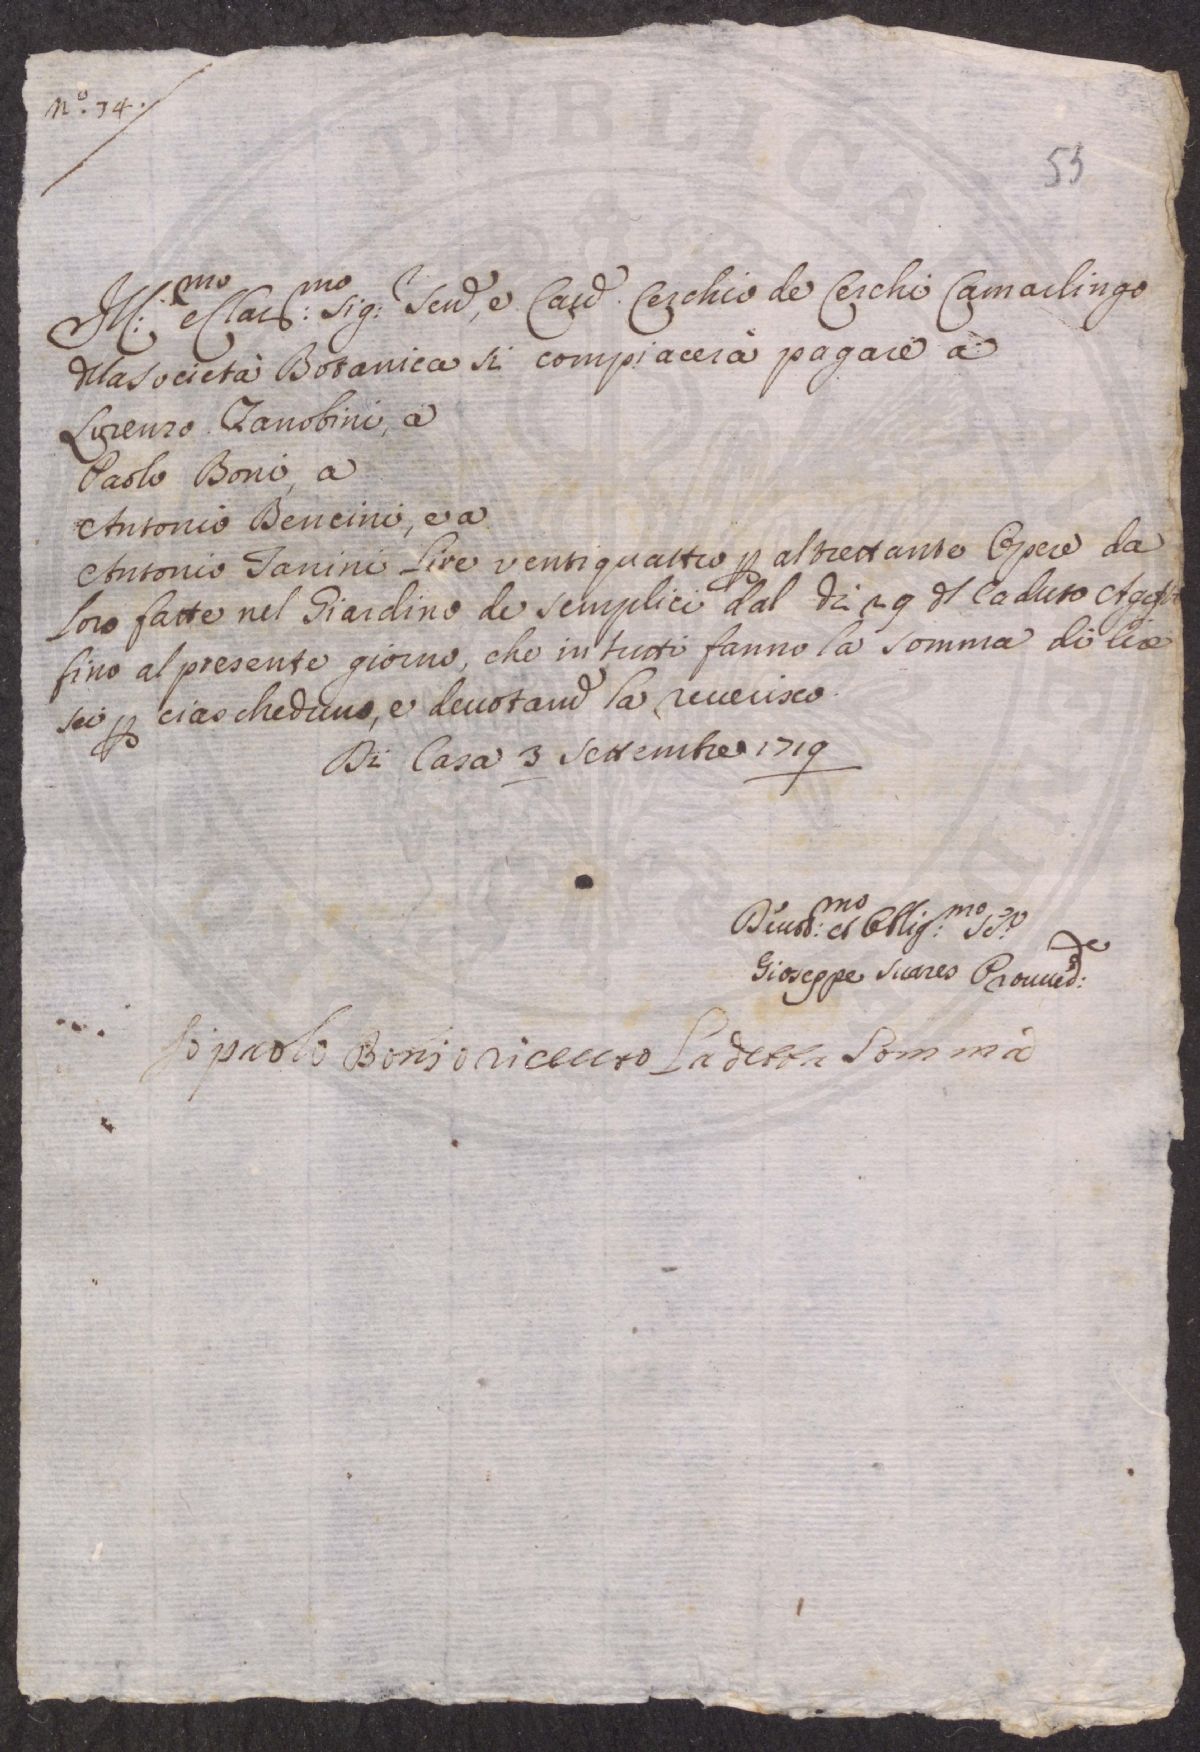 N.º 34.
55
Ill:mo e Clar:mo Sig:r Send, e Cavd. Cerchio de Cerchi Camarlingo
dlla Società Botanica si compiacerà pagare à
Lorenzo Zanobini, a
Paolo Boni, a
Antonio Bencini, e a
Antonio Janini Lire ventiquattro p altrettante Opere da
loro fatte nel Giardino de semplici dal dì 29 dl caduto Agosto
fino al presente giorno, che in tutti fanno la somma di lire
sei p ciascheduno, e devotamd la reverisco.
Di Casa 3 Settembre 1719
Deuot:mo et Obblig:mo Se:re
Gioseppe Suares Prouued:re
Io paolo Boni o riceuto La detta Somma